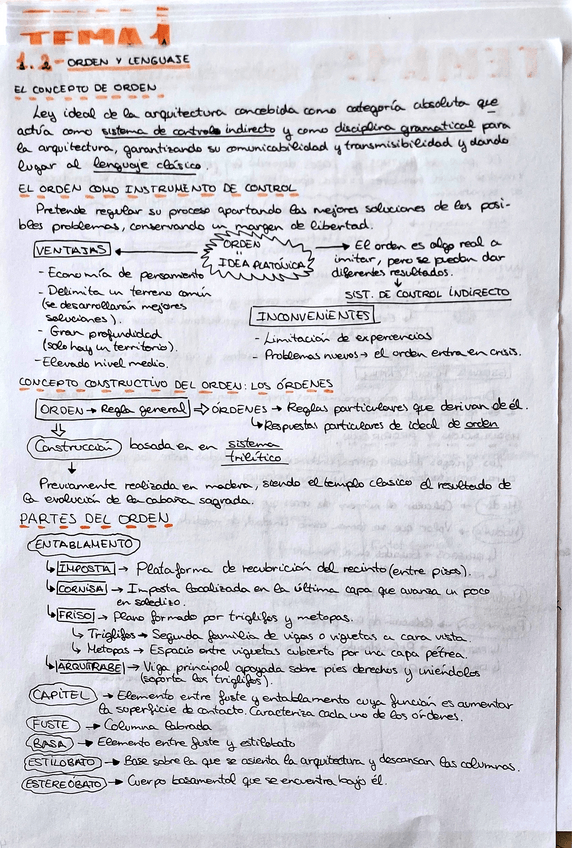 TEMA 1
1.2- ORDEN Y LENGUAJE
EL CONCEPTO DE ORDEN
Ley ideal de la arquitectura concebida como categoría absoluta que
actúa como sistema de control indirecto y como disciplina gramatical para
la arquitectura, garantizando su comunicabilidad y transmisibilidad y dando
lugar al lenguaje clásico.
EL ORDEN COMO INSTRUMENTO DE CONTROL
Pretende regular su proceso aportando las mejores soluciones de los posi-
bles problemas, conservando un margen de libertad.
VENTAJAS ← ORDEN = IDEA PLATÓNICA → El orden es algo real a
imitar, pero se puedan dar
diferentes resultados.
↓
SIST. DE CONTROL INDIRECTO
- Economía de pensamiento
- Delimita un terreno común
(se desarrollarán mejores
soluciones).
- Gran profundidad
(solo hay un territorio).
- Elevado nivel medio.
INCONVENIENTES
- Limitación de experiencias
- Problemas nuevos → el orden entra en crisis.
CONCEPTO CONSTRUCTIVO DEL ORDEN: LOS ÓRDENES
ORDEN → Regla general ⇒ ÓRDENES → Reglas particulares que derivan de él.
↳ Respuestas particulares de ideal de orden
Construcción basada en en sistema
trilítico
Previamente realizada en madera, siendo el templo clasico el resultado de
la evolución de la cabaña sagrada.
PARTES DEL ORDEN
ENTABLAMENTO
↳ IMPOSTA → Plataforma de recubrición del recinto (entre pisos).
↳ CORNISA → Imposta localizada en la última capa que avanza un poco
en saledizo.
↳ FRISO → Plano formado por triglifos y metopas.
↳ Triglifos → Segunda familia de vigas o viguetas a cara vista.
↳ Metopas → Espacio entre viguetas cubierto por una capa pétrea.
↳ ARQUITRABE → Viga principal apoyada sobre pies derechos y uniéndolos
(soporta los triglifos).
CAPITEL → Elemento entre fuste y entablamento cuya función es aumentar
la superficie de contacto. Caracteriza cada uno de los órdenes.
FUSTE → Columna labrada
BASA → Elemento entre fuste y estilobato
ESTILOBATO → Base sobre la que se asienta la arquitectura y descansan las columnas.
ESTEREÓBATO → Cuerpo basamental que se encuentra bajo él.